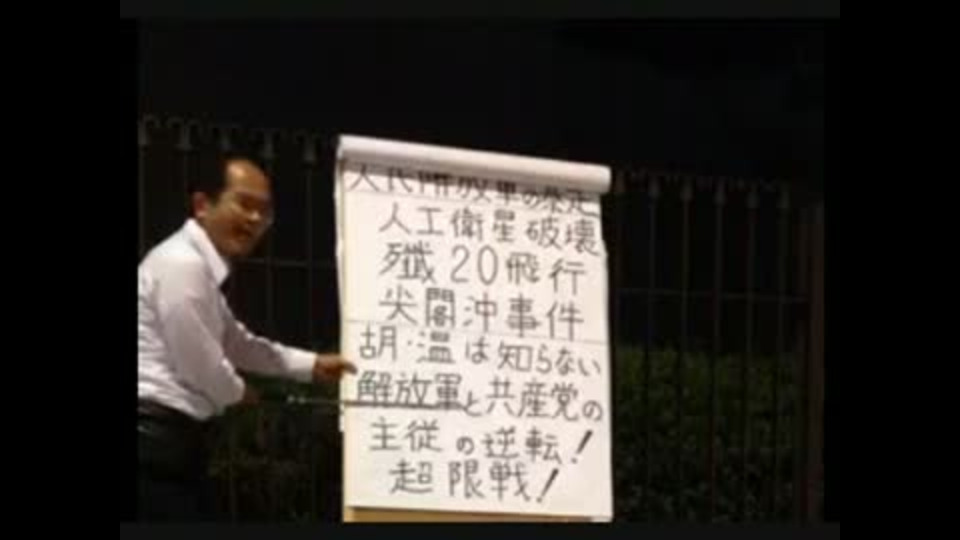 の暴走
人工衛星破壊
殲20飛行
尖閣沖事件
胡・温は知らない
解放軍と共産党の
主従の逆転!
超限戦!